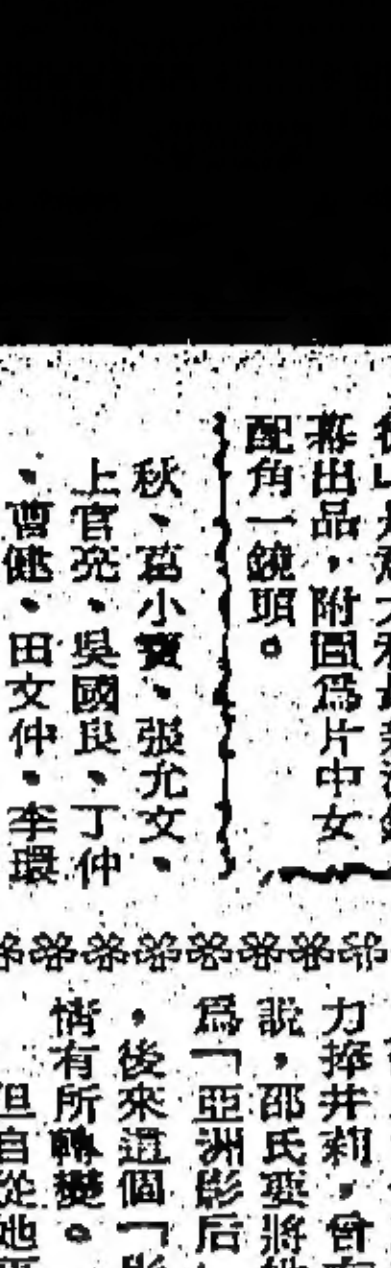 幕出品，附圖爲片中女
配角一鏡頭。
秋、葛小寶、張允文、
上官亮、吳國良、丁仲
、曹健、田文仲、李環
力捧井莉，曾
說，邵氏要將她
爲「亞洲影后
，後來這個「影
情有所轉變。
但自從她